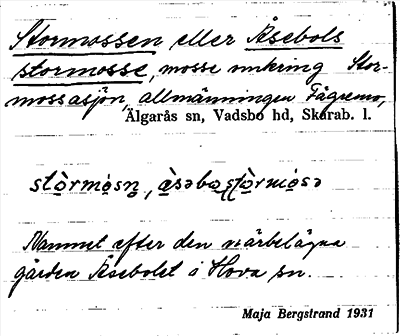 Stormossen eller Åsebols
stormosse, mosse omkring Stor-
mossasjön, allmänningen Fägremo,
Älgarås sn, Vadsbo hd, Skarab. l.
stòrmósn̥, æ̀səbo stòrmósə
Namnet efter den närbelägna
gården Åsebolet i Hova sn.
Maja Bergstrand 1931